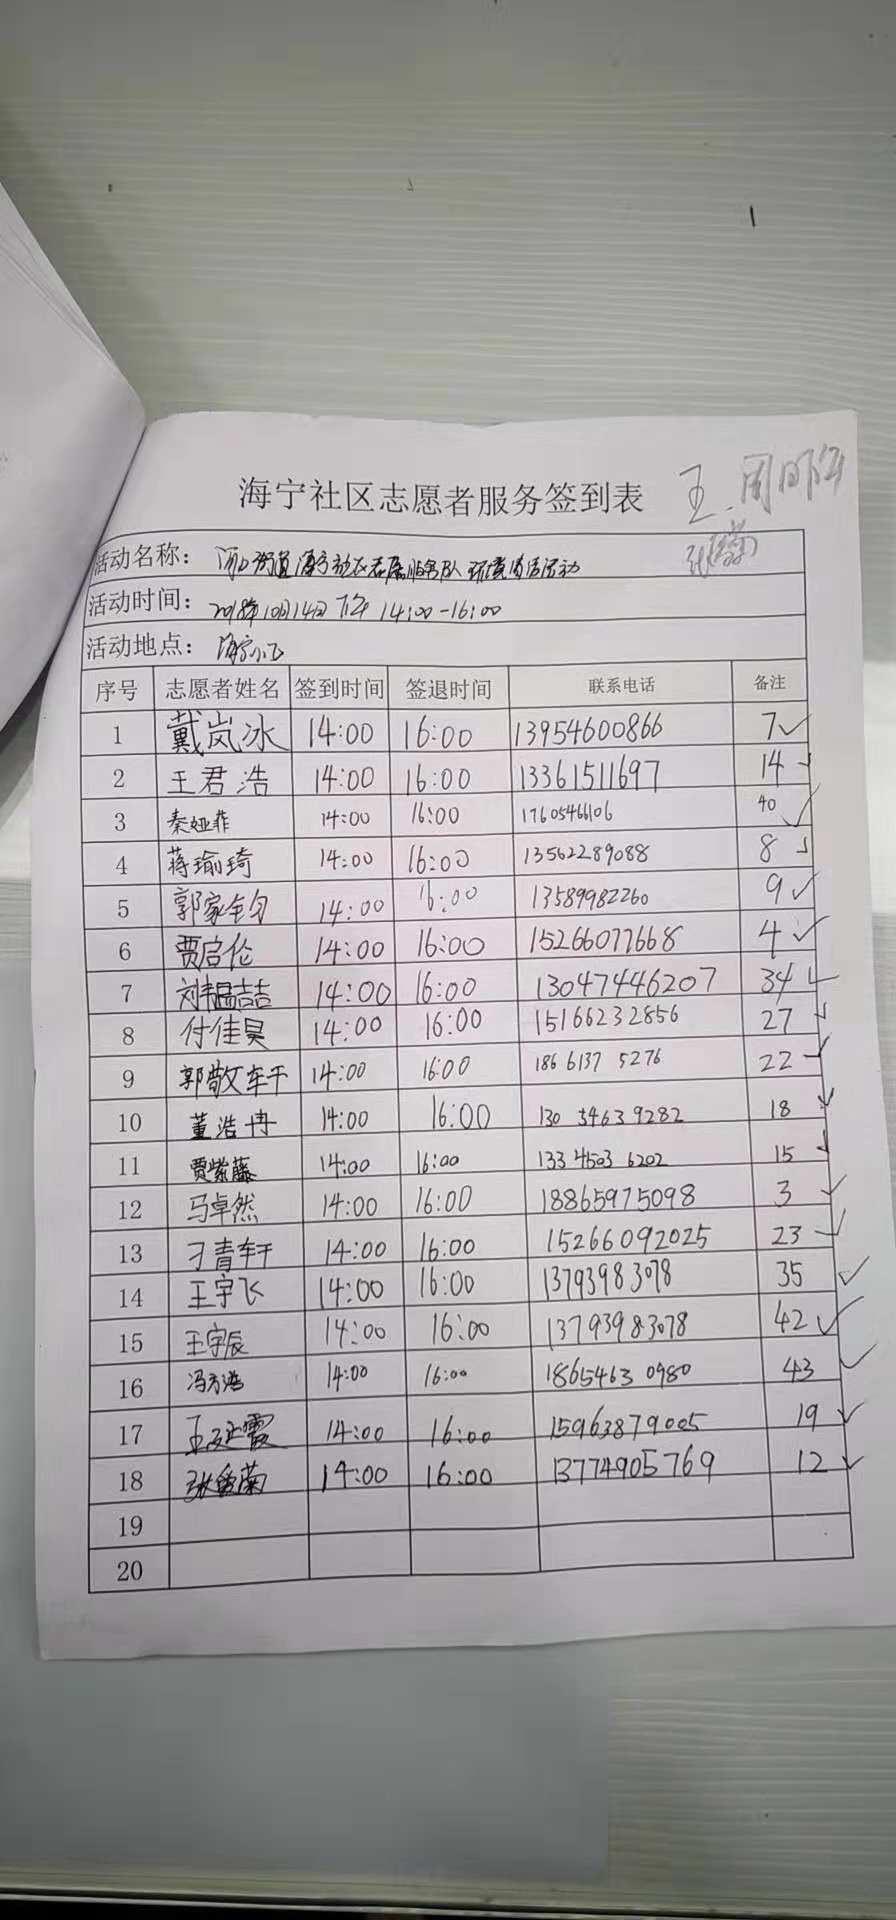 海宁社区志愿者服务签到表
王
活动名称： 环境清洁活动
活动时间： 2018年10月14日 下午 14:00-16:00
活动地点： 海宁小区
序号 志愿者姓名 签到时间 签退时间 联系电话 备注
1 戴岚冰 14:00 16:00 13954600866 7✓
2 王君浩 14:00 16:00 13361511697 14 ✓
3 秦娅菲 14:00 16:00 17605466106 40 ✓
4 蒋瑜琦 14:00 16:00 13562289088 8 ✓
5 郭家钧 14:00 16:00 13589982260 9 ✓
6 贾启伦 14:00 16:00 15266077668 4 ✓
7 刘韫喆 14:00 16:00 13047446207 34 ✓
8 付佳昊 14:00 16:00 15166232856 27 ✓
9 郭敬轩 14:00 16:00 186 6137 5276 22 ✓
10 董浩冉 14:00 16:00 130 5463 9282 18 ✓
11 贾紫藤 14:00 16:00 133 4503 6202 15 ✓
12 马卓然 14:00 16:00 18865975098 3 ✓
13 刁青轩 14:00 16:00 15266092025 23 ✓
14 王宇飞 14:00 16:00 13793983078 35 ✓
15 王宇辰 14:00 16:00 13793983078 42 ✓
16 冯方浩 14:00 16:00 1865463 0980 43 ✓
17 王延霞 14:00 16:00 15963879005 19 ✓
18 张 菊 14:00 16:00 13774905769 12 ✓
19
20